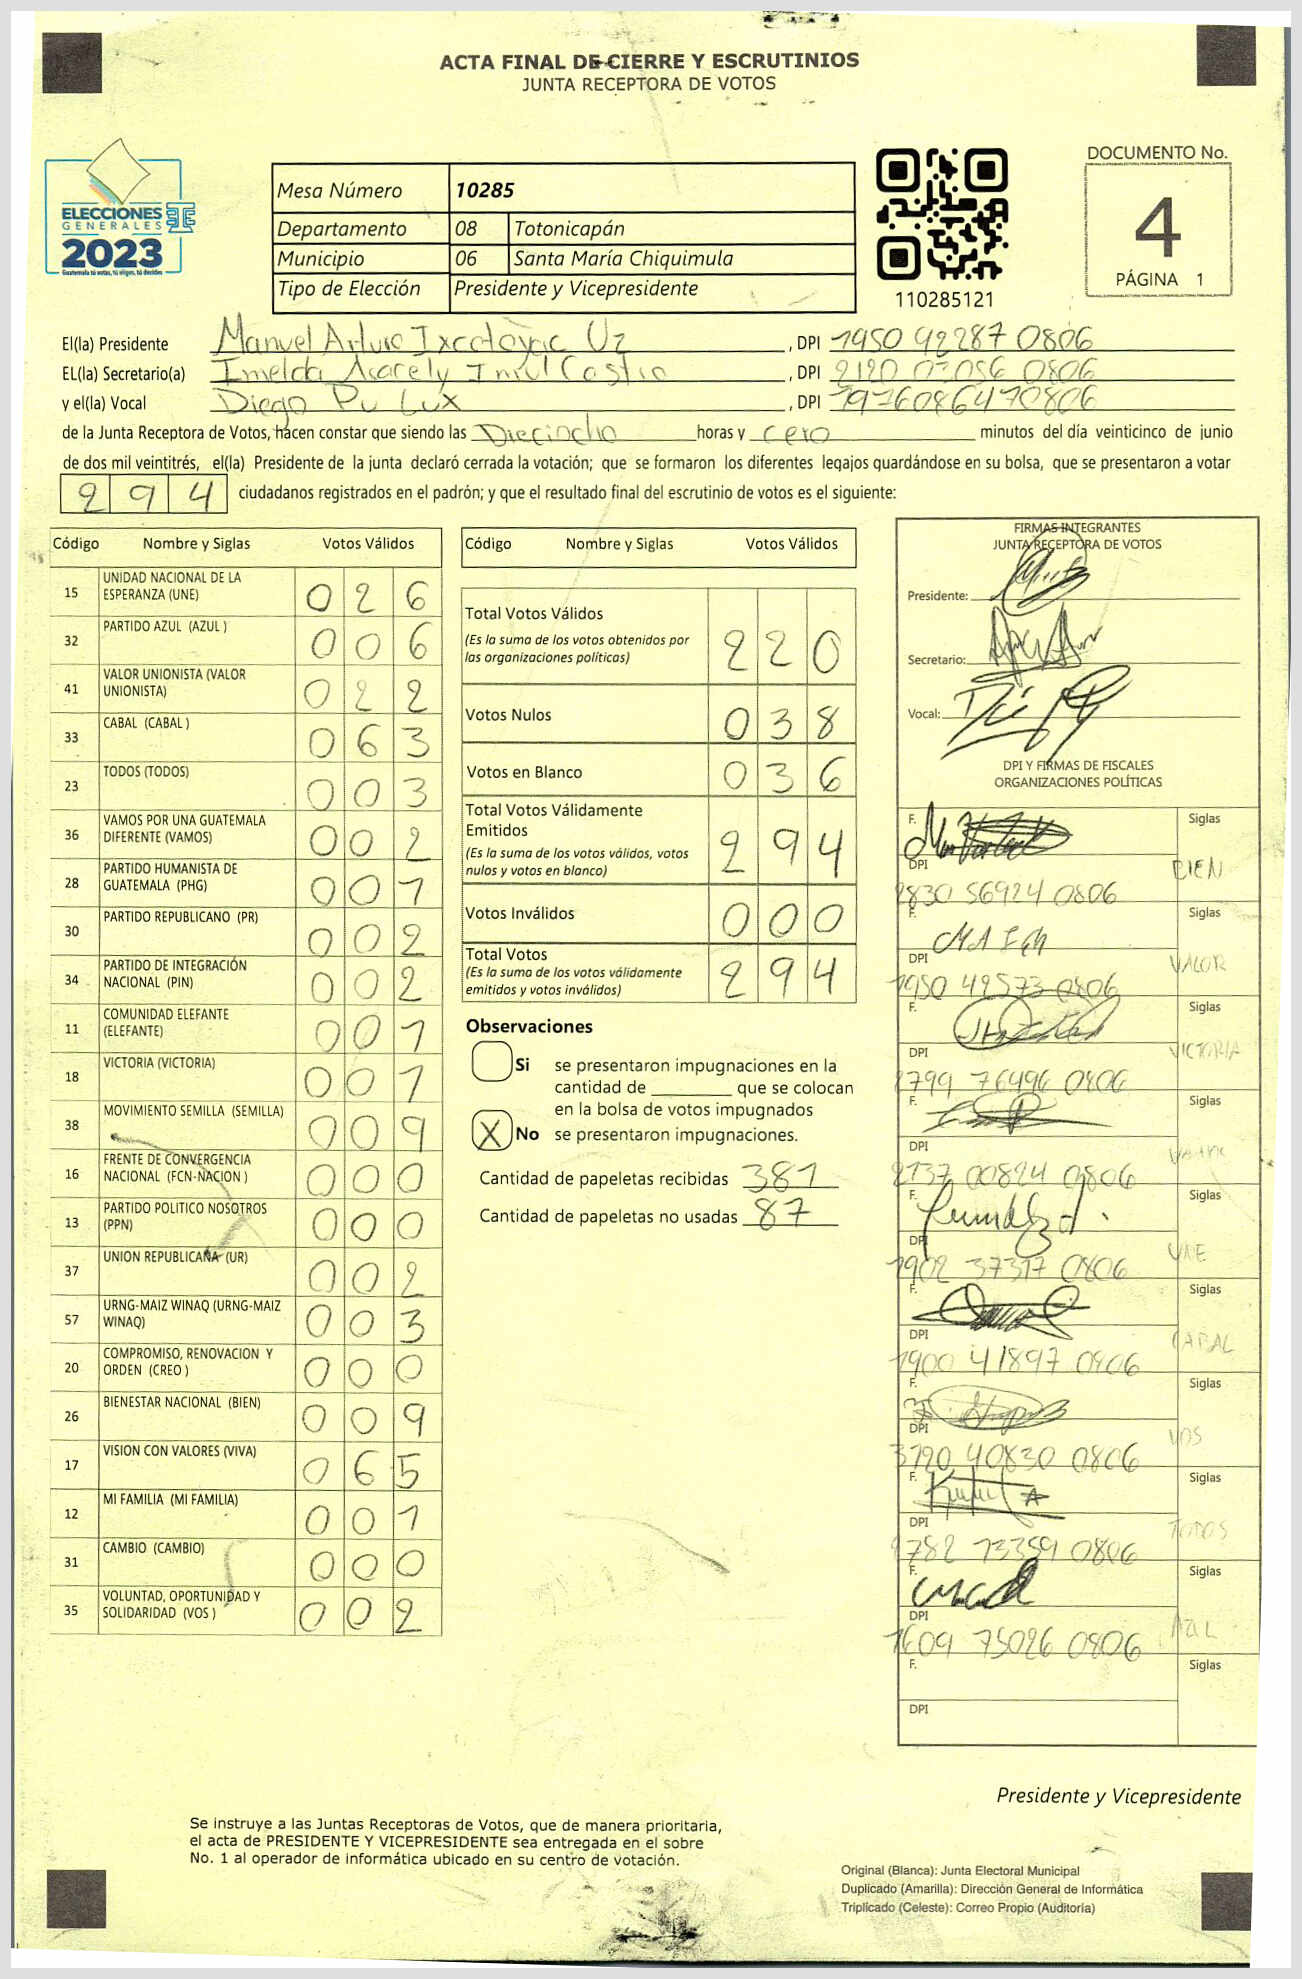 ACTA FINAL DE CIERRE Y ESCRUTINIOS
JUNTA RECEPTORA DE VOTOS
ELECCIONES
GENERALES
2023
Guatemala tú votas, tú eliges, tú decides
Mesa Número 10285
Departamento 08 Totonicapán
Municipio 06 Santa María Chiquimula
Tipo de Elección Presidente y Vicepresidente
110285121
DOCUMENTO No.
4
PÁGINA 1
El(la) Presidente Manuel Arturo Ixcotoyac Uz, DPI 1950 92287 0806
EL(la) Secretario(a) Imelda Aracely Imul Castro, DPI 2120 03056 0806
y el(la) Vocal Diego Pu Lux, DPI 1976086470806
de la Junta Receptora de Votos, hacen constar que siendo las Dieciocho horas y cero minutos del día veinticinco de junio
de dos mil veintitrés, el(la) Presidente de la junta declaró cerrada la votación; que se formaron los diferentes legajos guardándose en su bolsa, que se presentaron a votar
294 ciudadanos registrados en el padrón; y que el resultado final del escrutinio de votos es el siguiente:
Código Nombre y Siglas Votos Válidos
15 UNIDAD NACIONAL DE LA
ESPERANZA (UNE) 026
32 PARTIDO AZUL (AZUL ) 006
41 VALOR UNIONISTA (VALOR
UNIONISTA) 022
33 CABAL (CABAL ) 063
23 TODOS (TODOS) 003
36 VAMOS POR UNA GUATEMALA
DIFERENTE (VAMOS) 002
28 PARTIDO HUMANISTA DE
GUATEMALA (PHG) 001
30 PARTIDO REPUBLICANO (PR) 002
34 PARTIDO DE INTEGRACIÓN
NACIONAL (PIN) 002
11 COMUNIDAD ELEFANTE
(ELEFANTE) 001
18 VICTORIA (VICTORIA) 001
38 MOVIMIENTO SEMILLA (SEMILLA) 009
16 FRENTE DE CONVERGENCIA
NACIONAL (FCN-NACION ) 000
13 PARTIDO POLITICO NOSOTROS
(PPN) 000
37 UNION REPUBLICANA (UR) 002
57 URNG-MAIZ WINAQ (URNG-MAIZ
WINAQ) 003
20 COMPROMISO, RENOVACION Y
ORDEN (CREO ) 000
26 BIENESTAR NACIONAL (BIEN) 009
17 VISION CON VALORES (VIVA) 065
12 MI FAMILIA (MI FAMILIA) 001
31 CAMBIO (CAMBIO) 000
35 VOLUNTAD, OPORTUNIDAD Y
SOLIDARIDAD (VOS ) 002
Código Nombre y Siglas Votos Válidos
Total Votos Válidos 220
(Es la suma de los votos obtenidos por
las organizaciones políticas)
Votos Nulos 038
Votos en Blanco 036
Total Votos Válidamente
Emitidos 294
(Es la suma de los votos válidos, votos
nulos y votos en blanco)
Votos Inválidos 000
Total Votos 294
(Es la suma de los votos válidamente
emitidos y votos inválidos)
Observaciones
Si se presentaron impugnaciones en la
cantidad de ________ que se colocan
en la bolsa de votos impugnados
X No se presentaron impugnaciones.
Cantidad de papeletas recibidas 381
Cantidad de papeletas no usadas 87
FIRMAS INTEGRANTES
JUNTA RECEPTORA DE VOTOS
Presidente:
Secretario:
Vocal:
DPI Y FIRMAS DE FISCALES
ORGANIZACIONES POLÍTICAS
F. Siglas
DPI BIEN
2830 56924 0806
F. Siglas
DPI VALOR
1950 49573 0806
F. Siglas
DPI VICTORIA
2799 76496 0806
F. Siglas
DPI
2137 00824 0806
F. Siglas
DPI UNE
1902 37317 0806
F. Siglas
DPI CABAL
1900 41897 0906
F. Siglas
DPI VOS
3120 40830 0806
F. Siglas
DPI TODOS
2782 13359 0806
F. Siglas
DPI AZUL
1609 75026 0806
F. Siglas
DPI
Presidente y Vicepresidente
Se instruye a las Juntas Receptoras de Votos, que de manera prioritaria,
el acta de PRESIDENTE Y VICEPRESIDENTE sea entregada en el sobre
No. 1 al operador de informática ubicado en su centro de votación.
Original (Blanca): Junta Electoral Municipal
Duplicado (Amarilla): Dirección General de Informática
Triplicado (Celeste): Correo Propio (Auditoría)